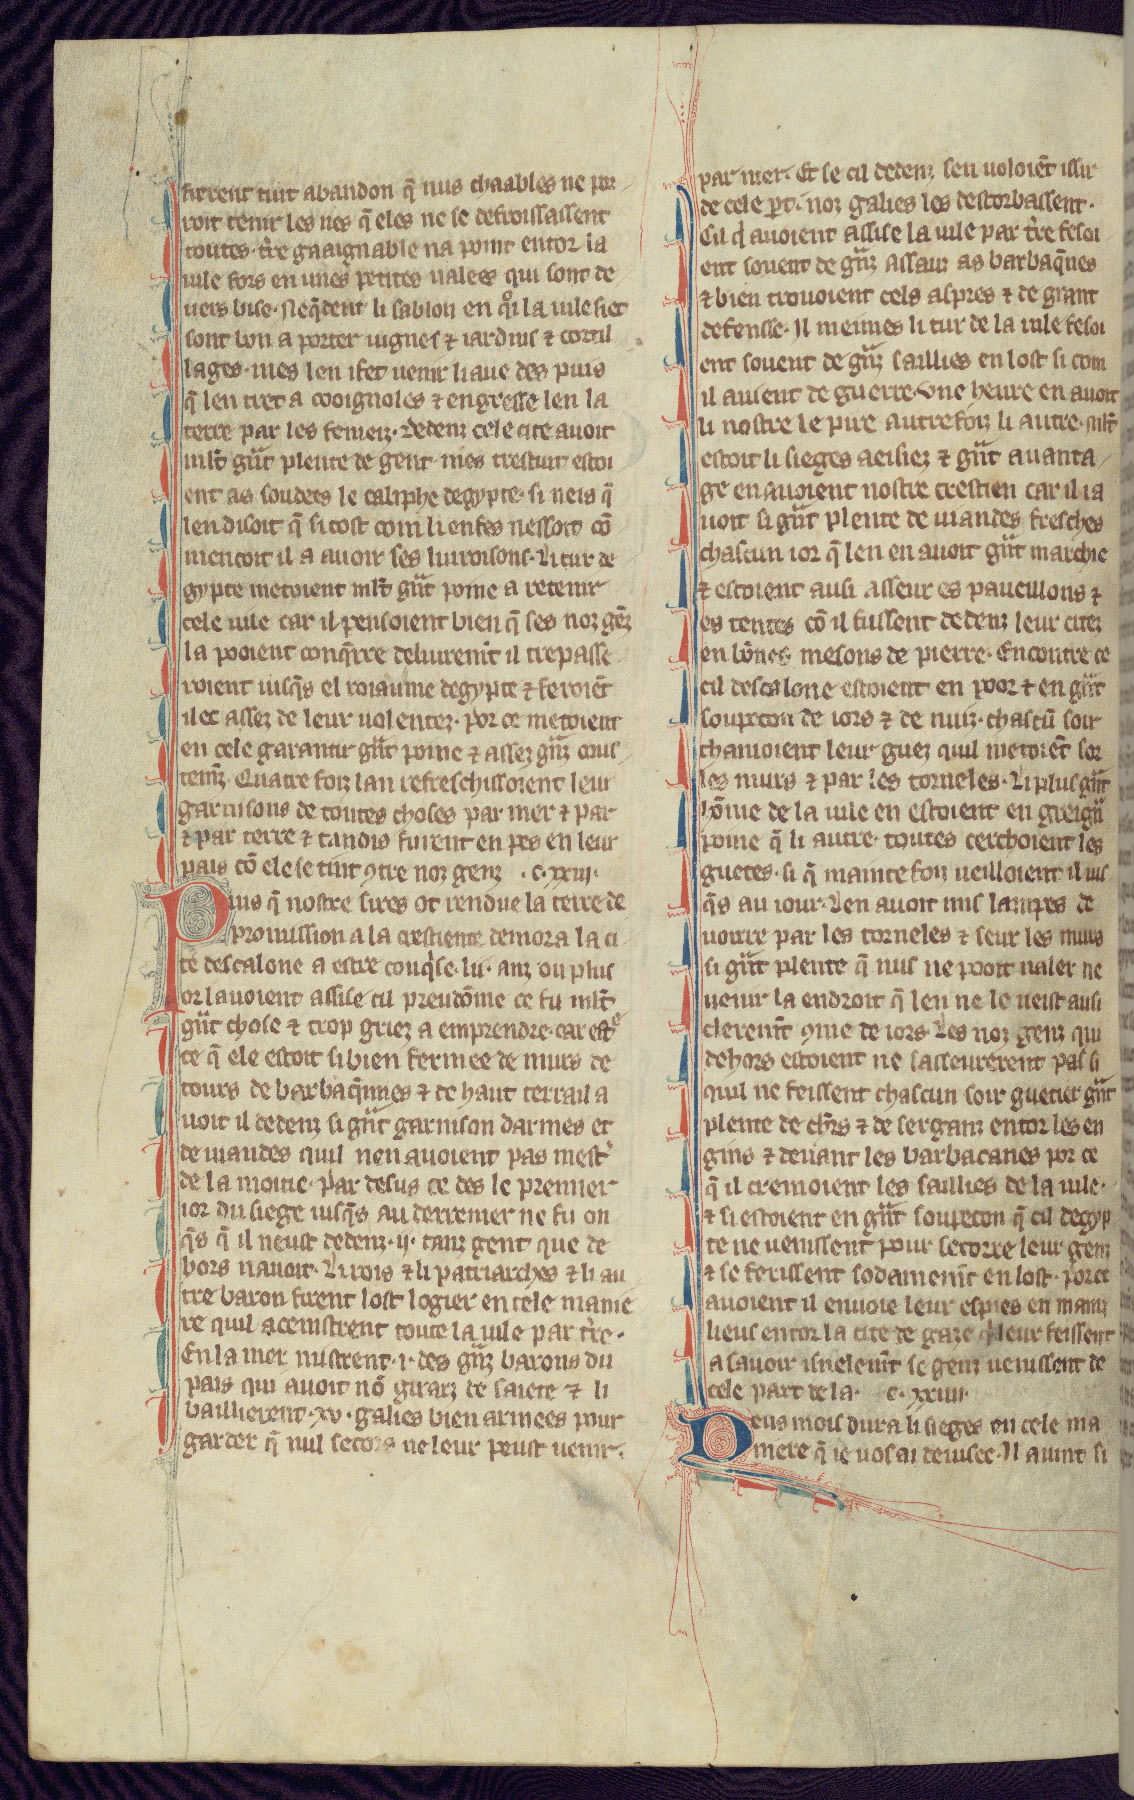 fierent tuit abandon q̃ nus chaables ne por
roit tenir les nes q̃ eles ne se defroissassent
toutes. t̃re gaaignable na point entor la
uile fors en unes petites ualees qui sont de
uers bise. neq̃dent li sablon en qͦi la uile siet
sont bon a porter uignes ⁊ iardins ⁊ cortil
lages. mes len i fet uenir liaue des puis
q̃ len tret a cooignoles ⁊ engresse len la
terre par les femeiz. Dedenz cele cite auoit
ml̃t gñt plente de gent. mes trestuit estoi
ent as soudees le caliphe degypte. si neis q̃
len disoit q̃ si tost com li enfes nessoit cõ
mencoit il a auoir ses liuroisons. Li tur de
gypte metoient ml̃t gñt poine a retenir
cele uile car il pensoient bien q̃ ses noz gẽz
la pooient conq̃rre deliurem̃t il trepasse
roient iusq̃s el roiaume degypte ⁊ feroiẽt
ilec assez de leur uolentez. por ce metoient
en cele garantir gñt poine ⁊ assez gñz cous
temẽz. Quatre foiz lan refreschissoient leur
garnisons de toutes choses par mer ⁊ par
⁊ par terre ⁊ tandis furent en pes en leur
pais cõ ele se tint ꝯtre noz genz .c.xxiii.
Puis q̃ nostre sires ot rendue la terre de
promission a la crestiente demora la ci
te descalone a estre conq̃se. lii. anz ou plus
or lauoient assise cil preudõme ce fu ml̃t
gñt chose ⁊ trop griez a emprendre. car est̃ͤ
ce q̃ ele estoit si bien fermee de murs de
tours de barbaq̃nnes ⁊ de haut terrail a
uoit il dedenz si gñt garnison darmes et
de uiandes quil nen auoient pas mest̃
de la moitie. par desus ce des le premier
ior du siege iusq̃s au derrenier ne fu on
q̃s q̃ il neust dedenz .ii. tanz gent que de
hors nauoit. Li rois ⁊ li patriarches ⁊ li au
tre baron firent lost logier en tele manie
re quil aceinstrent toute la uile par t̃re.
En la mer mistrent .i. des gñz barons du
pais qui auoit nõ girarz de saiete ⁊ li
baillierent .xv. galies bien armees pour
garder q̃ nul secors ne leur peust uenir.
par mer. Et se cil dedenz sen uoloiẽt issir
de cele p̃t. noz galies les destorbassent.
Cil q̃ auoient assise la uile par t̃re fesoi
ent souent de gñz assauz as barbaq̃nes
⁊ bien trouoient cels aspres ⁊ de grant
defensse. Il meimes li tur de la uile fesoi
ent souent de gñz saillies en lost si com
il auient de guerre. Vne heure en auoit
li nostre le pire autrefoiz li autre. ml̃t
estoit li sieges aeisiez ⁊ gñt auanta
ge en auoient nostre crestien car il ia
uoit si gñt plente de uiandes fresches
chascun ior q̃ len en auoit gñt marchie
⁊ estoient ausi asseur es paueillons ⁊
es tentes cõ il fussent dedenz leur citez
en bõnes mesons de pierre. Encontre ce
cil descalone estoient en poor ⁊ en gñt
soupecon de iors ⁊ de nuiz. chascũ soir
chanioient leur guez quil metoiẽt sor
les murs ⁊ par les torneles. Li plus gñt
hõme de la uile en estoient en greigñ
poine q̃ li autre. toutes cerchoient les
guetes. si q̃ maintefoiz ueilloient il ius
q̃s au iour. Len auoit mis lampes de
uoirre par les torneles ⁊ seur les murs
si gñt plente q̃ nus ne pooit naler ne
uenir la endroit q̃ len ne le ueist ausi
clerem̃t ꝯme de iors. Les noz genz qui
dehors estoient ne sasseurerent pas si
quil ne feissent chascun soir guetier gñt
plente de ch̃rs ⁊ de serganz entor les en
gins ⁊ deuant les barbacanes por ce
q̃ il cremoient les saillies de la uile.
⁊ si estoient en gñt soupecon q̃ cil degyp
te ne uenissent pour secorre leur genz
⁊ se ferissent sodainem̃t en lost. por ce
auoient il enuoie leur espies en mainz
lieus entor la cite de gaze q̃ leur feissent
a sauoir isnelem̃t se genz uenissent de
cele part de la. c.xxiiii.
Deus mois dura li sieges en cele ma
niere q̃ ie uos ai deuisee. Il auint si